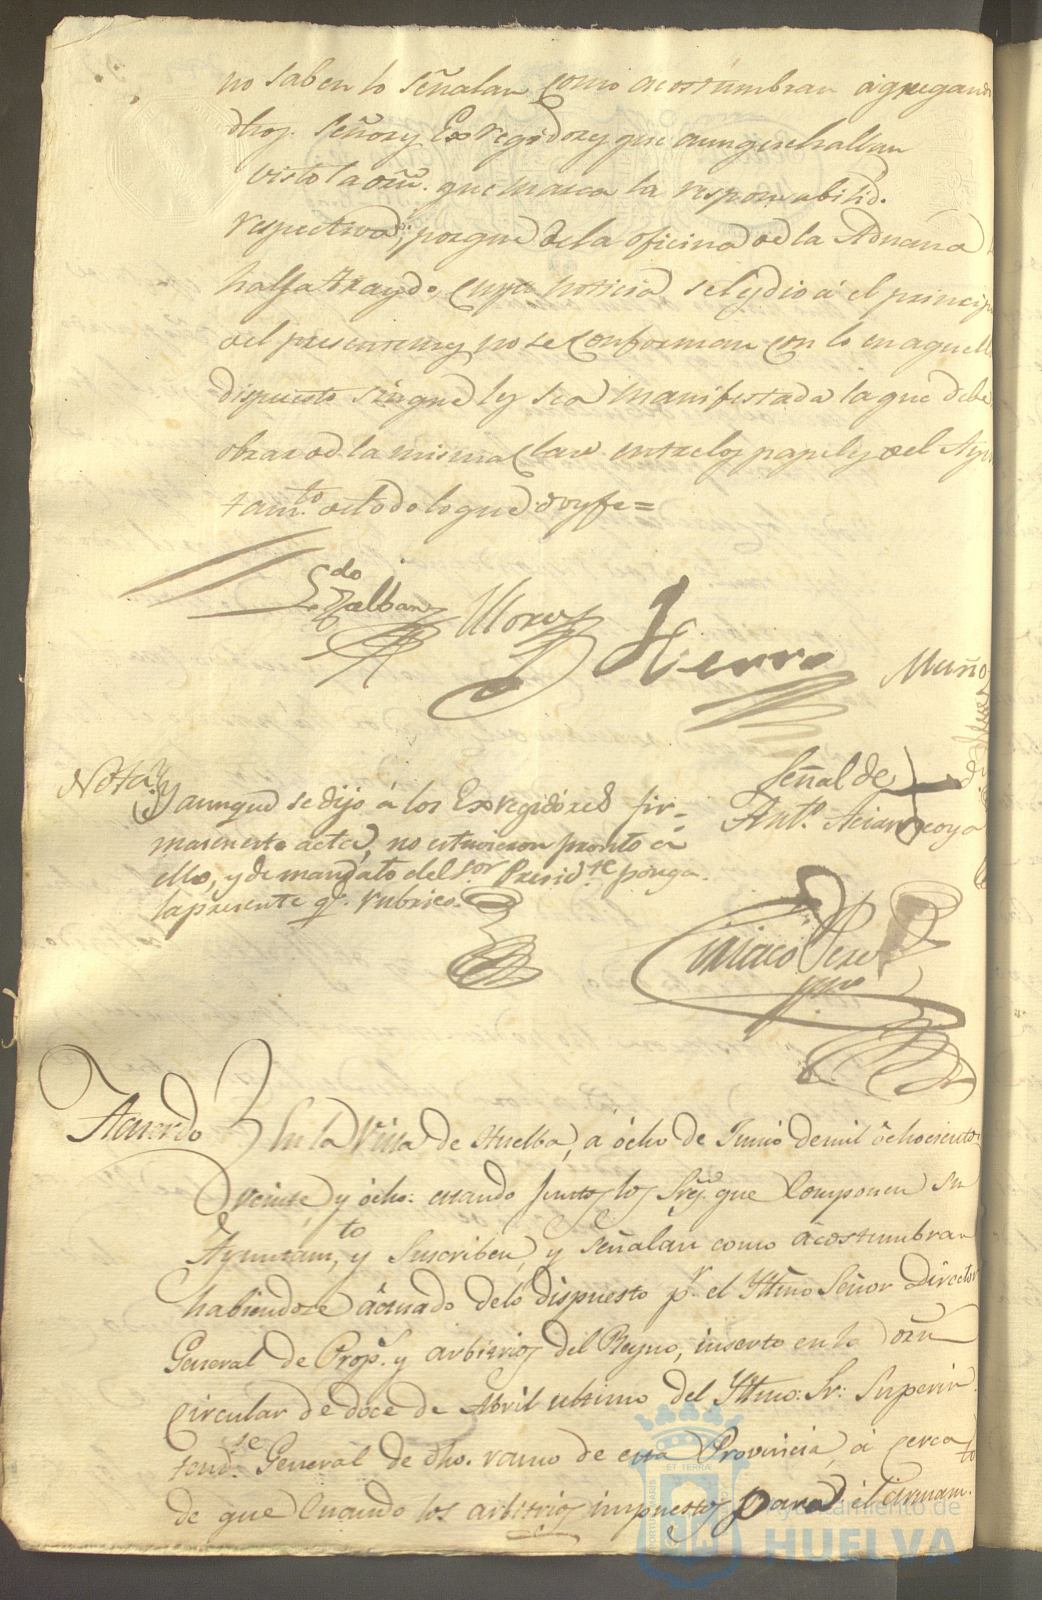 no saben lo señalan como acostumbran agregando
dhos. Señores Exregidores que aunque hallan
visto la orn. que marca la responsabilid.
respectiva, porque de la oficina de la Aduana
halla traydo, cuya noticia se les dio á el princip
del presente mes no se conforman con lo en aquella
dispuesto sin que les sea manifestada la que debe
obrar de la misma clase entre los papeles del Ayun
tamto. de todo lo que doy fe =
Ldo. Zalbana
Mora
Hierro
Muño
Nota. Y aunque se dijo á los Exregidores fir-
masen esta acta, no estuvieron pronto á
ello, y de mandato del Sor. Presidte. pongo
la presente q. rubrico.
Señal de
Anto.
Ciriaco Perez
Acuerdo En la Villa de Huelba, a ócho de Junio de mil óchocientos
veinte y ócho: estando juntos los Sres. que componen su
Ayuntamto. y suscriben, y señalan como acostumbran
habiendose actuado de lo dispuesto pr. el Yltmo Señor Director
General de Props. y arbitrios del Reyno, inserto en la orn
circular de doce de Abril ultimo del Yltmo: Sr: Superin
tendse. General de dho. ramo de esta Provincia, á cerca
de que cuando los arbitrios impuestos para el armam.to
Ayuntamiento de
HUELVA